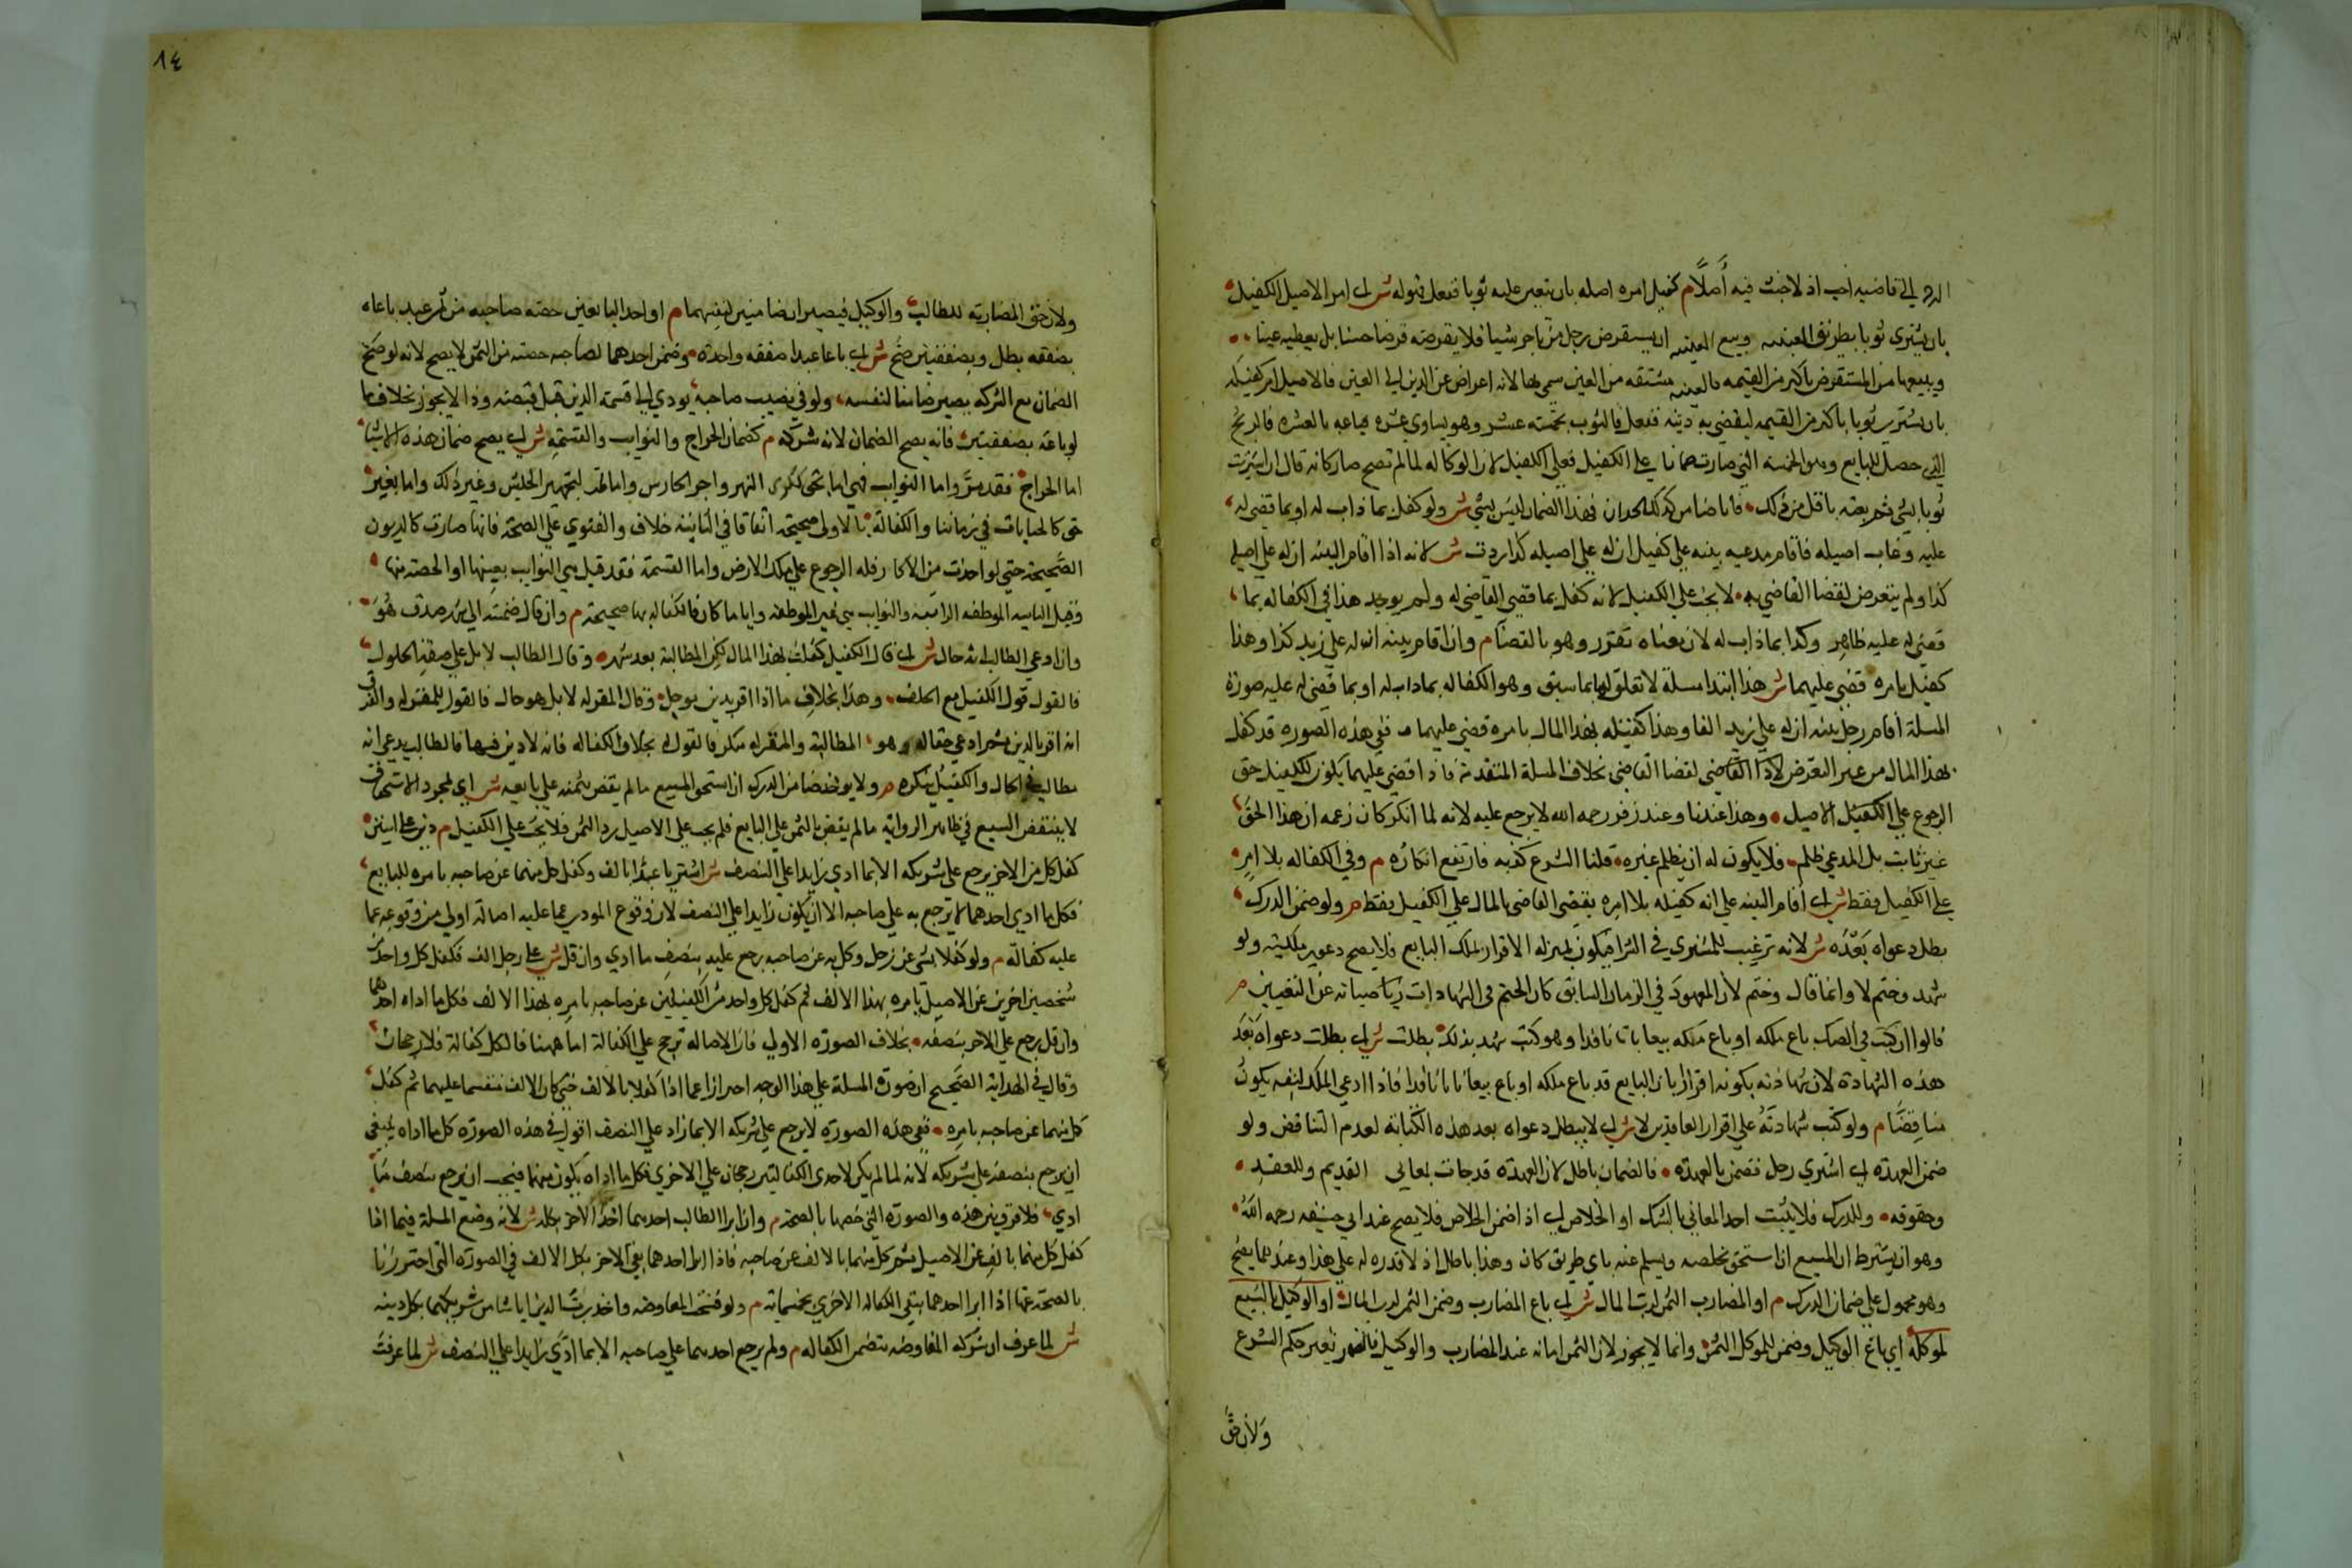 الرد الى قاضيه احب اذ لا خبث فيه أصلًا م كفيل امره اصيله بان يتعين عليه ثوبا ففعل فهو له ش اى امر الاصيل الكفيل
بان يشترى ثوبا بطريق العينه وبيع العينه ان يستقرض رجل من تاجر شيا فلا يقرضه قرضا حسنا بل يعطيه عينا
ويبيعها من المستقرض باكثر من القيمه فالعينه مشتقه من العين سمى بها لانه اعراض عن الدين الى العين فالاصيل امر كفيله
بان يشترى ثوبا باكثر من القيمه ليقضي به دينه ففعل فالثوب بخمسه عشر وهو يساوي عشره فباعه بالعشره فالربح
الذي حصل للبايع وهو الخمسه التي صارت خسرانا على الكفيل فعلى الكفيل لان الوكاله لما لم تصح صار كانه قال ان اشتريت
ثوبا بشي ثم بعته باقل من ذلك فانا ضامن كذلك الخسران فهذا الضمان ليس بشي ش ولو كفل بما ذاب له او بما قضى له
عليه وغاب اصيله فاقام مدعيه بينه على كفيله ان له على اصيله كذا ردت ش لانه اذا اقام البينه ان له على اصيله
كذا ولم يتعرض لقضا القاضي به لا يجب على الكفيل لانه كفل بما قضى القاضي له ولم يوجد هذا في الكفاله بما
قضى له عليه ظاهر وكذا بما ذاب له لان معناه تقرر وهو بالقضا م وان اقام بينه ان له على زيد كذا وهذا
كفيل بامره قضي عليهما ش هذا ابتدا مسلة لا تعلق لها بما سبق وهو الكفاله بما ذاب له او بما قضى له عليه صورة
المسلة اقام رجل بينه ان له على زيد الفا وهذا كفيله بهذا المال بامره قضي عليهما ففي هذه الصوره قد كفل
بهذا المال من غير التعرض لقضا القاضي بخلاف المسلة المتقدمة فاذا قضي عليهما يكون للكفيل حق
الرجوع على الاصيل وهذا عندنا وعند زفر رحمه الله لا يرجع عليه لانه لما انكر كان زعمه ان هذا الحق
غير ثابت بل المدعي ظلم فلا يكون له ان يظلم غيره قلنا الشرع كذبه فارتفع انكاره م وفي الكفاله بلا امر
على الكفيل فقط ش اى اقام البينه على انه كفيله بلا امره يقضى القاضي بالمال على الكفيل فقط م ولو ضمن الدرك
بطل دعواه بعده ش لانه ترغيب للمشترى في الشرا فيكون بمنزله الاقرار بملك البايع فلا يصح دعوى ملكيته ولو
شهد وختم لا وانما قال وختم لان المعهود في الزمان السابق كان الختم في الشهادات صيانه عن التغيير م
قالوا ان كتب في الصك باع ملكه او باع ملكه بيعا باتا نافذا وهو كتب شهد بذلك بطلت ش اى بطلت دعواه بعد
هذه الشهادة لان شهادته بكونه اقرار بان البايع قد باع ملكه او باع بيعا باتا نافذا فاذا ادعى الملك لنفسه يكون
مناقضا م ولو كتب شهادته على اقرار العاقدين لا ش اى لا يبطل دعواه بعد هذه الكتابه لعدم التناقض ولو
ضمن العهدة اى اشترى رجل فضمن بالعهدة فالضمان باطل لان العهدة قد جات لمعاني القديم وللعقد
وحقوقه وللدرك فلا يثبت احد المعاني بالشك او الخلاص اى اذا ضمن الخلاص فلا يصح عند ابي حنيفه رحمه الله
وهو ان يشترط ان المبيع اذا استحق يخلصه ويسلم عنه باي طريق كان وهذا باطل اذ لا قدره له على هذا وعندهما يصح
وهو محمول على ضمان الدرك م او المضارب الثمن لرب المال ش اى باع المضارب وضمن الثمن لرب المال او الوكيل بالبيع
لموكله اي باع الوكيل وضمن للموكل الثمن وانما لا يجوز لان الثمن امانه عند المضارب والوكيل فالضمان تغيير حكم الشرع
ولان حق
٨٤
ولان حق المضاربه للطالب والوكيل فيصيران ضامنين لنفسهما م او احد البايعين حصة صاحبه من ثمن عبد باعاه
بصفقه بطل وبصفقتين صح ش اى باعا عبدا صفقه واحدة وضمن احدهما لصاحبه حصته من الثمن لا يصح لانه لو صح
الضمان مع الشركه يصير ضامنا لنفسه ولو في نصيب صاحبه يودي الى قسمة الدين قبل قبضه وذا لا يجوز بخلاف ما
لو باعه بصفقتين فانه يصح الضمان لانه لا شركه م كضمان الخراج والنوايب والقسمة ش اى يصح ضمان هذه الاشيا
اما الخراج فقد مر واما النوايب فهي اما بحق ككرى النهر واجر الحارس وما لتجهيز الجيش وغير ذلك واما بغير
حق كالجبايات في زماننا والكفالة بالاولى صحيحة اتفاقا في الثانية خلاف والفتوى على الصحة فانها صارت كالديون
الصحيحة حتى لو اخذت من الاكار فله الرجوع على مالك الارض واما القسمة فقد قيل هي النوايب بعينها او الحصة منها
وقيل النايبه الموظفه الراتبه والنوايب هي غير الموظفه وايا ما كان فالكفاله بها صحيحة م وان قال ضمنته الى شهر صدق هو
وان ادعى الطالب انه حال ش اى قال الكفيل كفلت بهذا المال لكن المطالبة بعد شهر وقال الطالب لا بل على صفة الحلول
فالقول قول الكفيل مع الحلف وهذا بخلاف ما اذا اقر بدين موجل وقال المقر له لا بل هو حال فالقول للمقر له والفرق
انه اقر بالدين ثم ادعى حقا له وهو المطالبة والمقر له منكر فالقول له بخلاف الكفاله فانه لا دين فيها فالطالب يدعي انه
مطالب في الحال والكفيل ينكره م ولا يوخذ ضامن الدرك ان استحق المبيع ما لم يقض بثمنه على بايعه ش اى بمجرد الاستحقاق
لا ينتقض البيع في ظاهر الرواية ما لم يقض بالثمن على البايع فلم يجب على الاصيل رد الثمن فلا يجب على الكفيل م دين على اثنين
كفل كل من الاخر يرجع على شريكه الا بما ادى زايدا على النصف ش اشتريا عبدا بالف وكفل كل منهما عن صاحبه بامره للبايع
فكل ما ادى احدهما لا يرجع به على صاحبه الا ان يكون زايدا على النصف لان وقوع المودى عما عليه اصالة اولى من وقوعه عما
عليه كفالة م ولو كفلا بشي عن رجل وكل به عن صاحبه رجع عليه بنصف ما ادى وان قل ش على رجل الف فكفل كل واحد من
شخصين اخرين عن الاصيل بامره بهذا الالف ثم كفل كل واحد من الكفيلين عن صاحبه بامره بهذا الالف فكل ما اداه احدهما
وان قل يرجع على الاخر بنصفه بخلاف الصورة الاولى فان الاصاله ترجح على الكفالة اما ههنا فالكل كفالة فلا رجحان
وقال في الهداية الصحيح ان صورة المسلة على هذا الوجه احترازا عما اذا كفلا بالالف حتى كان الالف منقسما عليهما ثم كفل
كل منهما عن صاحبه بامره ففي هذه الصورة لا يرجع على شريكه الا بما زاد على النصف اقول في هذه الصورة كل ما اداه ينبغي
ان يرجع بنصفه على شريكه لانه لما لم يكن لاحدى الكفالتين رجحان على الاخرى فكل ما اداه يكون منهما فيجب ان يرجع بنصف ما
ادى فلا فرق بين هذه والصورة التي خصها بالصحة م وان ابرا الطالب احدهما اخذ الاخر بكله ش لانه وضع المسلة فيما اذا
كفل كل منهما بالف عن الاصيل ثم كل منهما بالالف عن صاحبه فاذا ابرا احدهما بقي الاخر بكل الالف في الصورة التي احترزنا
بالصحة عنها اذا ابرا احدهما بقي الكفاله الاخرى بخمسماية م ولو فسخت المفاوضه واخذ رب الدين ايا شا من شريكيها بكل دينه
ش لما عرف ان شركة المفاوضه تتضمن الكفاله م ولم يرجع احدهما على صاحبه الا بما ادى زايدا على النصف ش لما عرفت